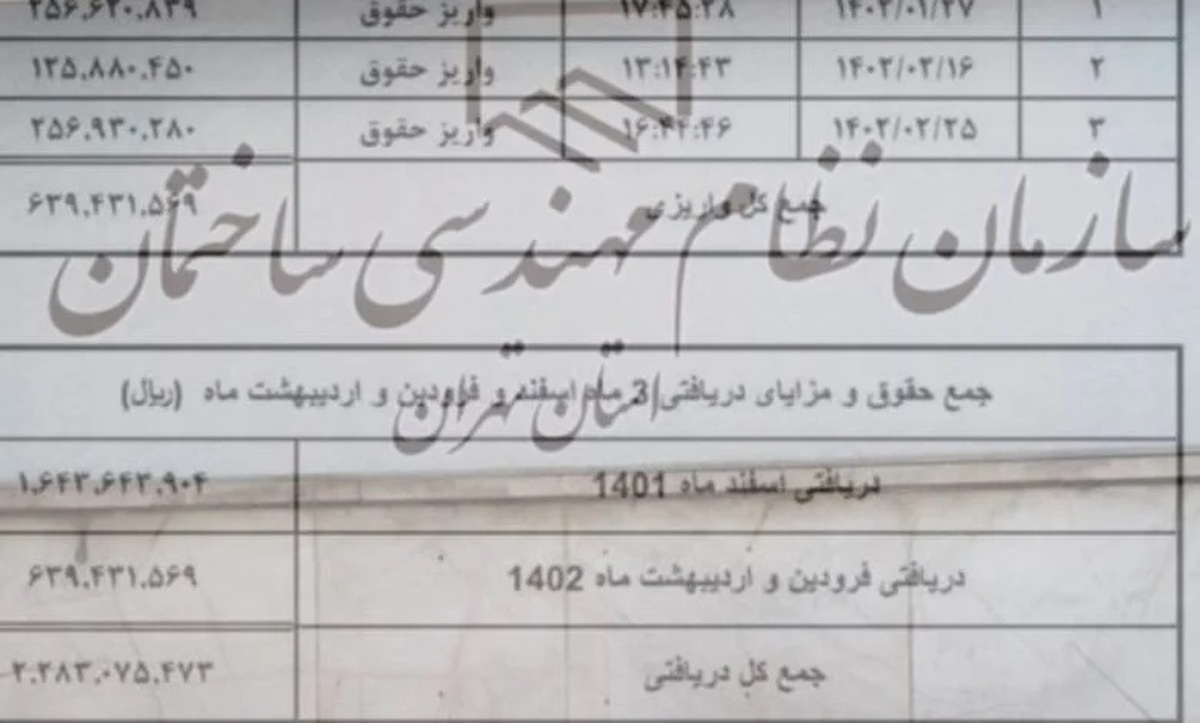 ۱ ۱۴۰۲/۰۱/۲۷ ۱۷:۴۵:۲۸ واریز حقوق ۲۵۶.۶۲۰.۸۳۹
۲ ۱۴۰۲/۰۲/۱۶ ۱۳:۱۴:۴۳ واریز حقوق ۱۲۵.۸۸۰.۴۵۰
۳ ۱۴۰۲/۰۲/۲۵ واریز حقوق ۲۵۶.۹۳۰.۲۸۰
جمع کل واریزی ۶۳۹.۴۳۱.۵۶۹
سازمان نظام مهندسی ساختمان
استان تهران
جمع حقوق و مزایای دریافتی 3 ماه اسفند و فرودین و اردیبهشت ماه (ریال)
دریافتی اسفند ماه 1401 ۱.۶۴۳.۶۴۳.۹۰۴
دریافتی فرودین و اردیبهشت ماه 1402 ۶۳۹.۴۳۱.۵۶۹
جمع کل دریافتی ۲.۲۸۳.۰۷۵.۴۷۳